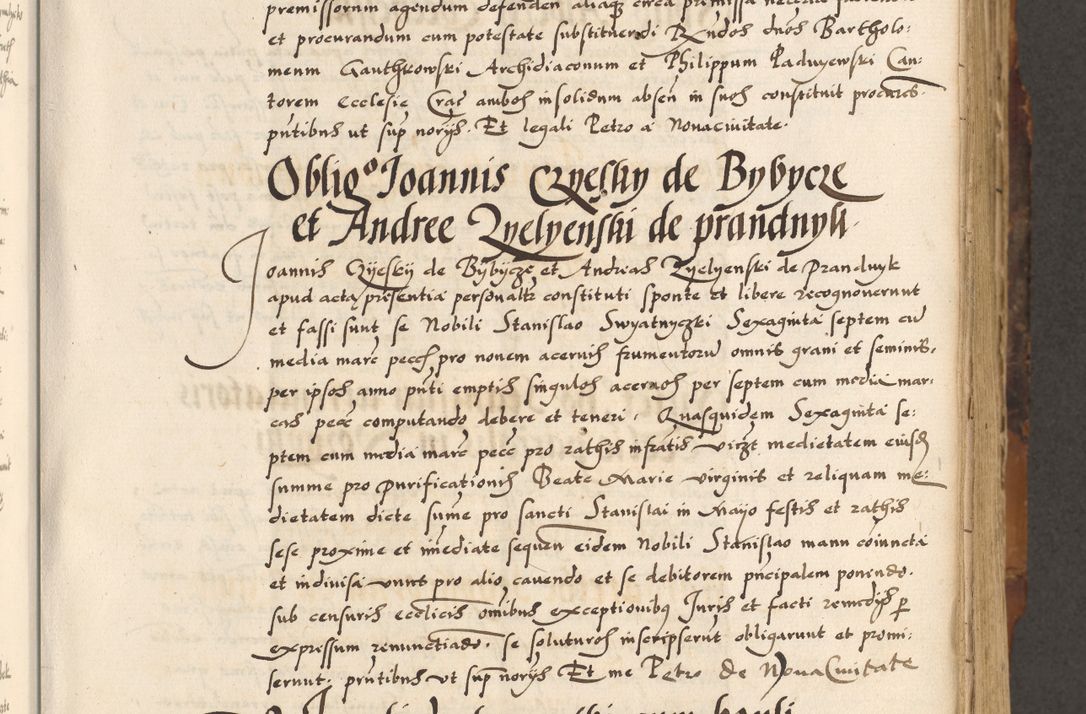 premissorum agendum defenden aliaqȝ circa premissa
et procurandum cum potestate substituendi Rndos dnos Bartholo:
meum Ganthkowski Archidiaconum et Philippum Paduyewski Can:
torem Ecclesie Crac ambos insolidum absen in suos constituit procures.
pntibus ut sup noryss. Et legali Petro a Novacivitate.
Oblig⁰ Joannis Czyesky de Bybycze
et Andree Zyelyenski de prandnyk
Joannis Czyesky de Bybycze et Andreas Zyelyenski de Prandnyk
apud acta presentia personaltr constituti sponte et libere recognoverunt
et fassi sunt se Nobili Stanislao Swyatnyczki Sexaginta septem cu
media marc pecc pro novem acervis frumentoru omnis grani et seminis,
per ipsos anno pnti emptis singulos acervos per septem cum media mar:
cas pecc computando debere et teneri. Quasquidem Sexaginta se:
ptem cum media marc pecc pro rathis infratis viczt medietatem eiusd
summe pro purificationis Beate Marie virginis et reliquam me:
dietatem dicte sume pro sancti Stanislai in Mayo festis et rathis
sese proxime et imediate sequen eidem Nobili Stanislao manu coiuncta
et indivisa unus pro alio cavendo et se debitorem pncipalem ponendo.
sub censuris ecclicis omibus exceptionibq Juris et facti remedys p
expressum renunctiado. se soluturos inscripserut obligarunt et promi:
serunt: pntibus ut sup noryss Et me Petro de Nova Civitate